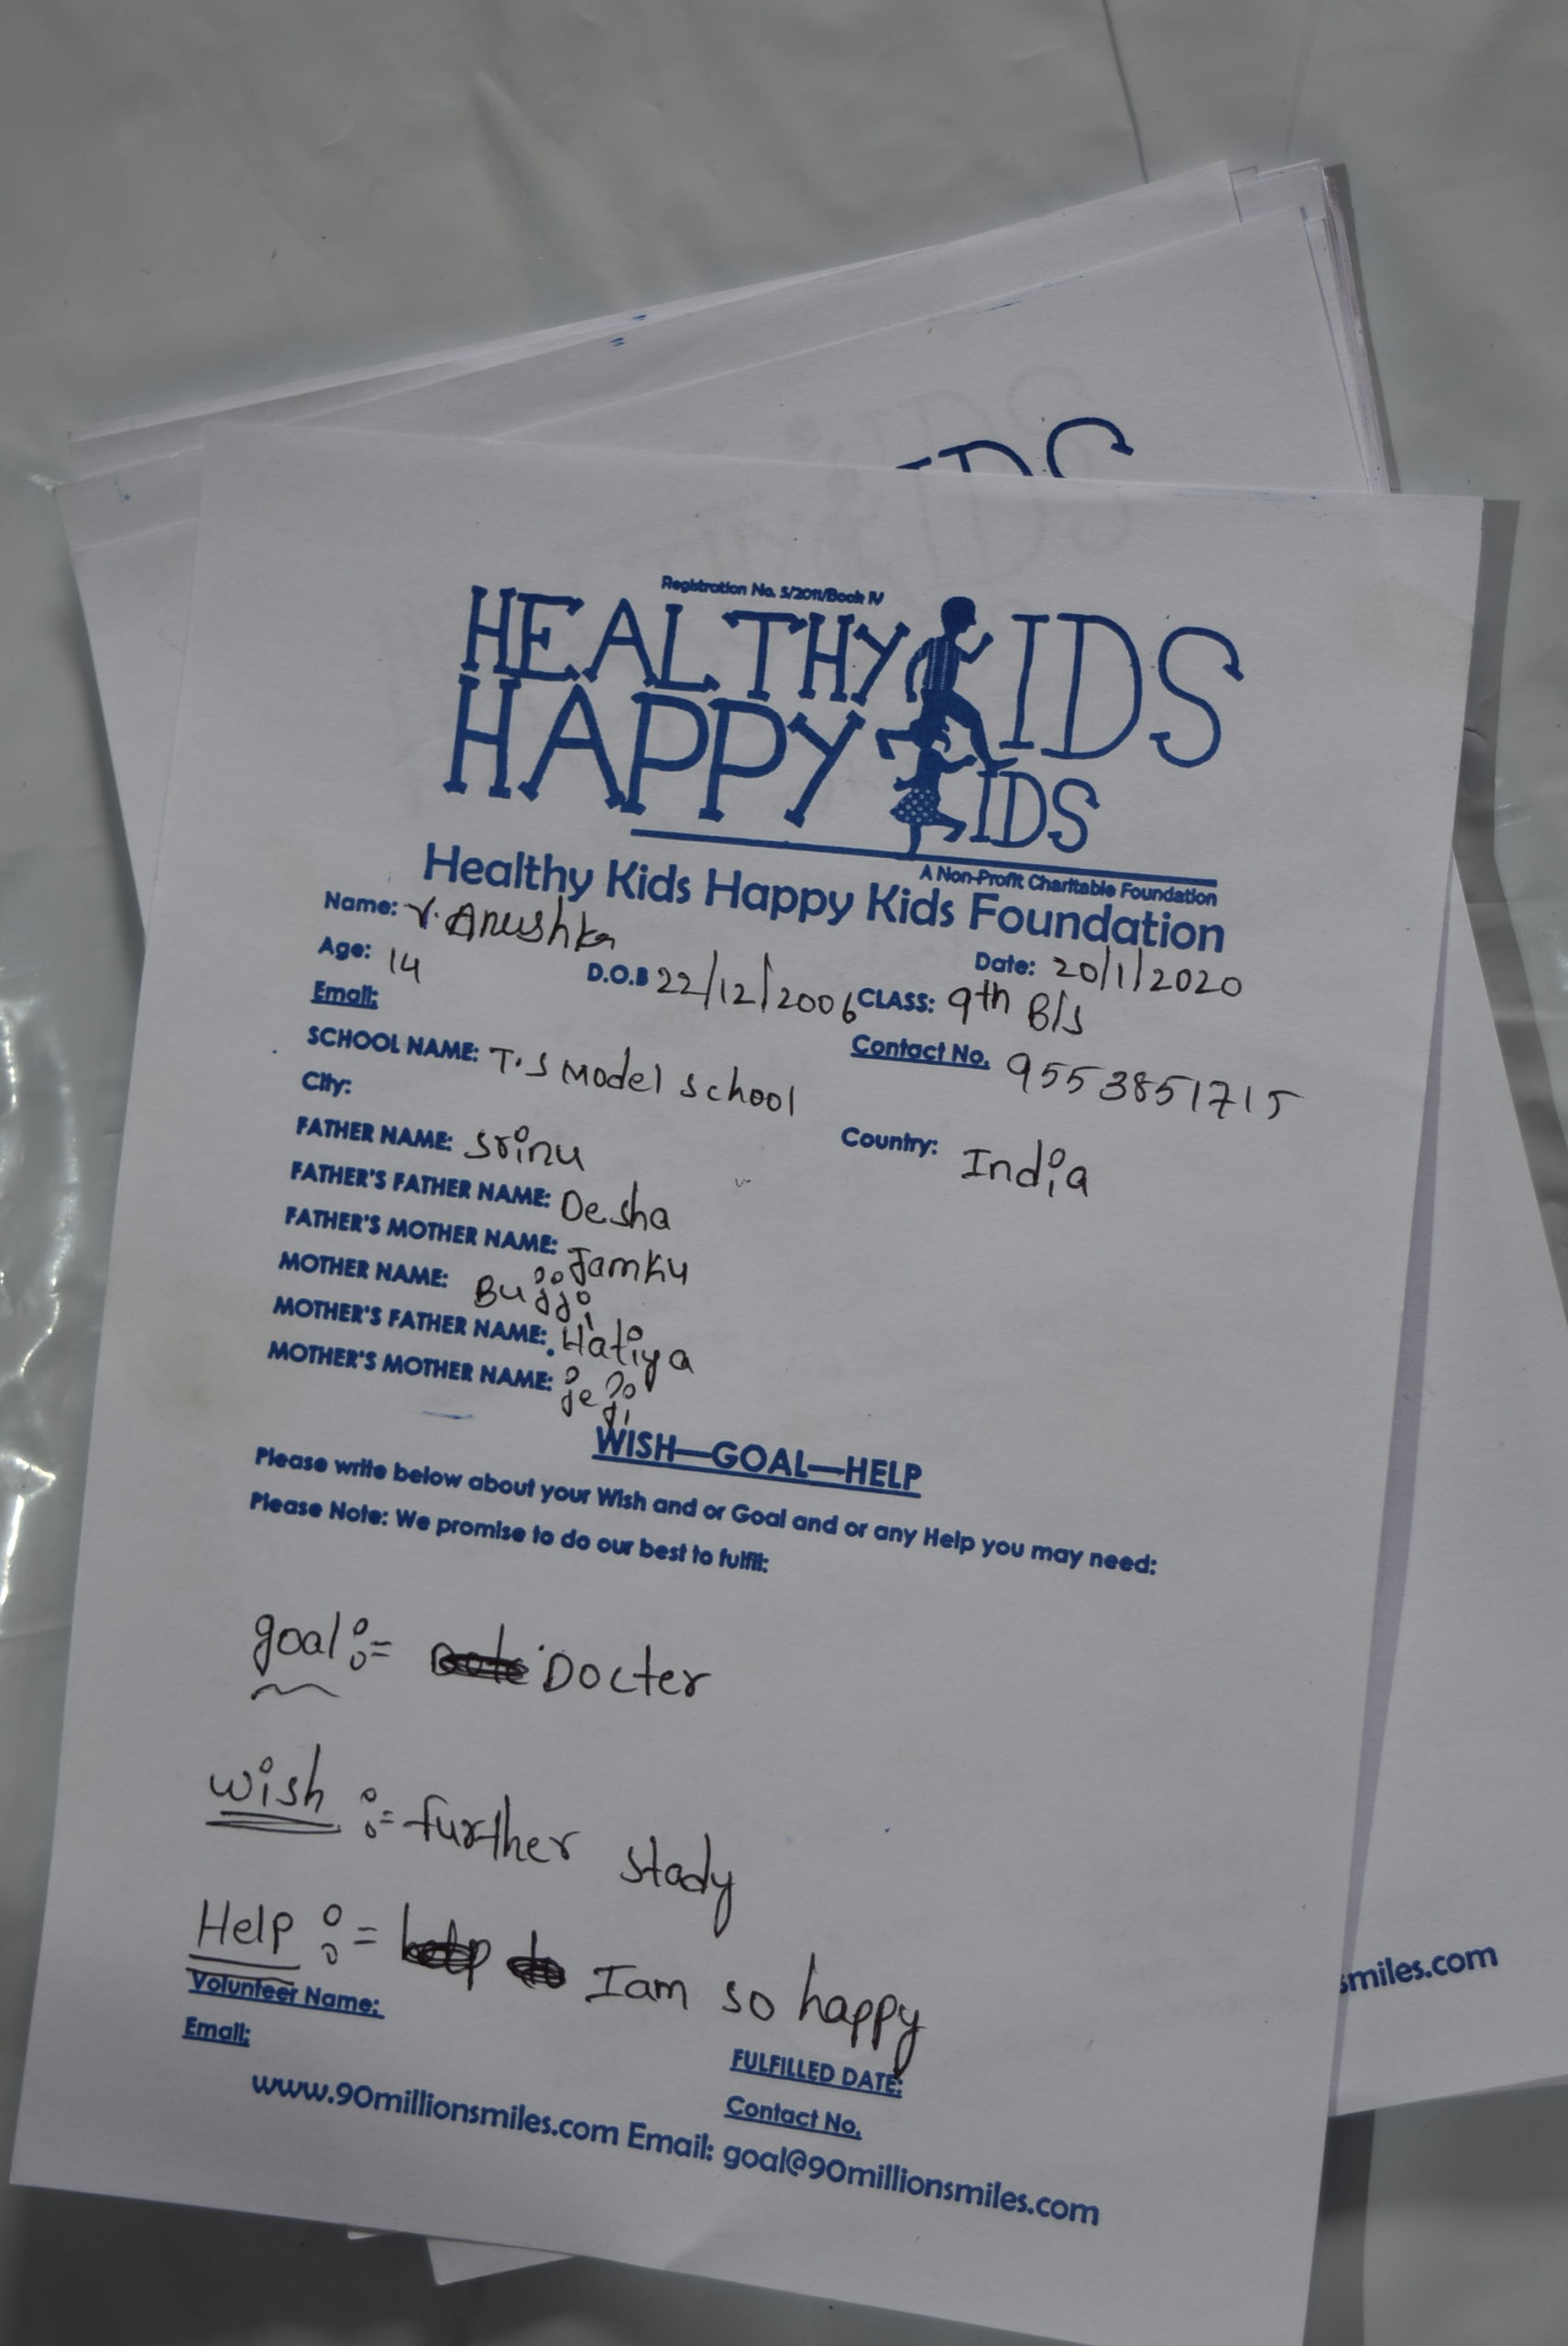 Registration No. 5/2011/Book IV
HEALTHY KIDS
HAPPY KIDS
A Non-Profit Charitable Foundation
Healthy Kids Happy Kids Foundation
Name: V. Anushka
Date: 20/1/2020
Age: 14 D.O.B 22/12/2006 CLASS: 9th B/S
Email:
Contact No. 9553851715
SCHOOL NAME: T.S Model school
City:
Country: India
FATHER NAME: Srinu
FATHER'S FATHER NAME: Desha
FATHER'S MOTHER NAME: Jamku
MOTHER NAME: Bujji
MOTHER'S FATHER NAME: Hatiya
MOTHER'S MOTHER NAME: jeji
WISH—GOAL—HELP
Please write below about your Wish and or Goal and or any Help you may need:
Please Note: We promise to do our best to fulfil:
goal := Docter
wish := further stady
Help := I am so happy
Volunteer Name:
FULFILLED DATE:
Email:
Contact No.
www.90millionsmiles.com Email: goal@90millionsmiles.com
smiles.com